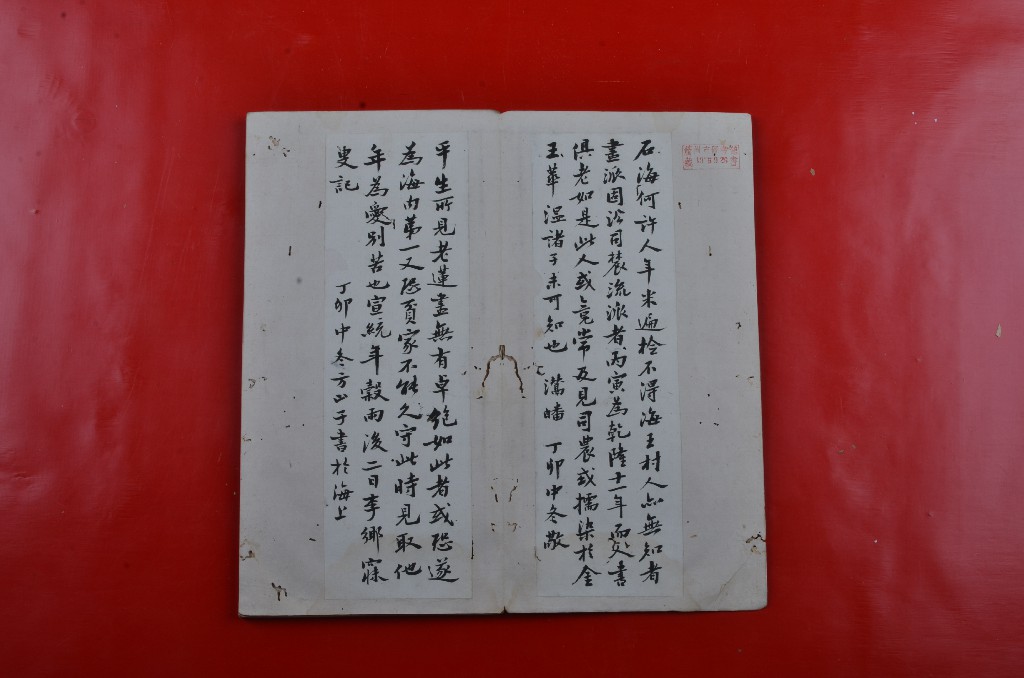 石海何許人年米遍檢不得海王村人亦無知者
畫派固沿司農流派者丙寅為乾隆十一年而其人書
俱老如是此人或竟常及見司農或擩染於金
玉華溫諸子未可知也 鷟皤 丁卯中冬敬
平生所見老蓮畫無有卓絕如此者或恐遂
為海內第一又恐貢家不能久守此時見取他
年為愛別苦也宣統年穀雨後二日李鄉寐
叟記 丁卯中冬方山子書於海上